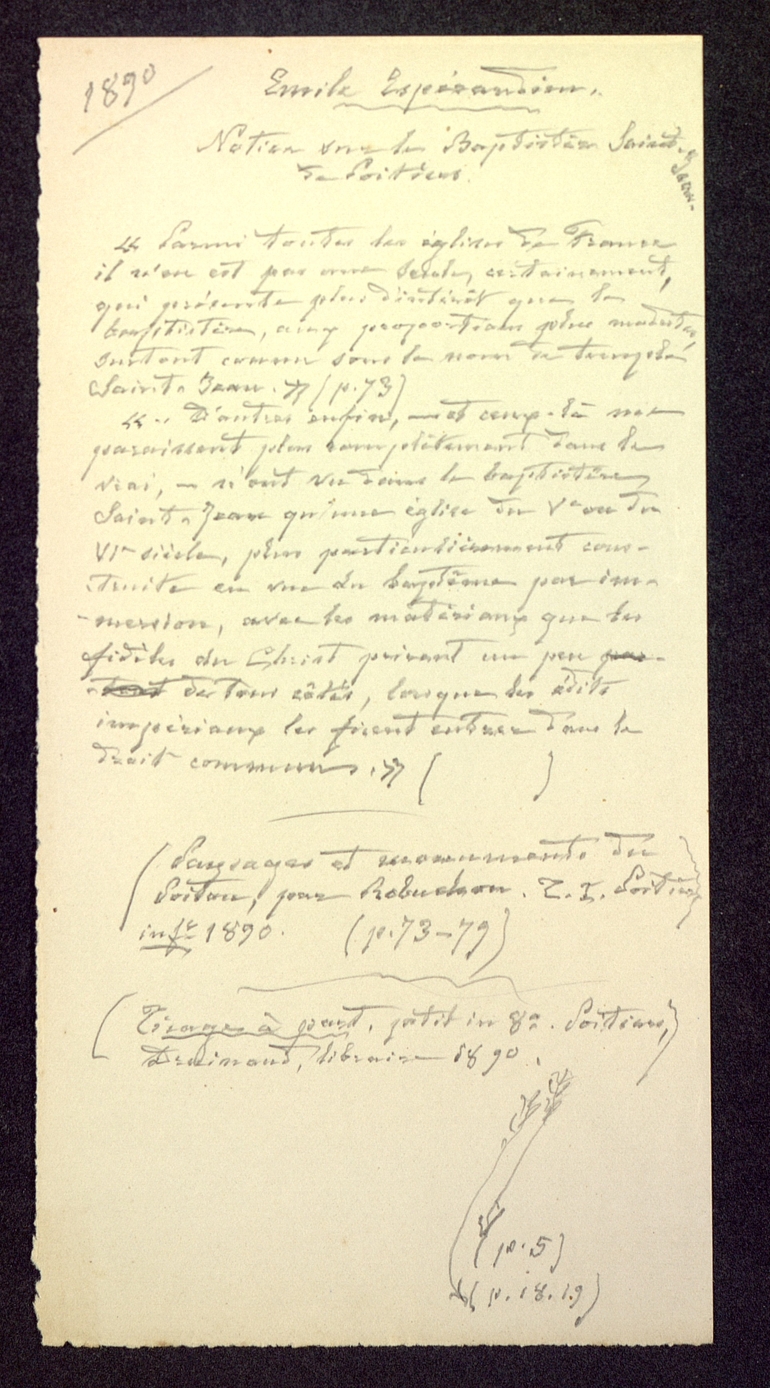 1890
Emile Espérandieu.
Notice sur le Baptistère Saint-Jean-
de Poitiers.
« Parmi toutes les églises de France
il n'en est pas une seule, certainement,
qui présente plus d'intérêt que le
baptistère, aux proportions plus modestes,
surtout connu sous le nom de temple
Saint-Jean. » (p. 73)
« .. D'autres enfin, — et ceux-là me
paraissent plus complètement dans le
vrai, — n'ont vu dans le baptistère
Saint-Jean qu'une église du Ve ou du
VIe siècle, plus particulièrement cons-
truite en vue du baptême par im-
-mersion, avec les matériaux que les
fidèles du Christ prirent un peu par-
-tout de tous côtés, lorsque les édits
impériaux les firent entrer dans le
droit commun. » ( )
(Paysages et monuments du
Poitou, par Robuchon. T. I. Poitiers
in-fo 1890. (p. 73-79)
(Tirage à part, petit in 8o. Poitiers,
libraire 1890.)
(p. 5)
(p. 18. 19)